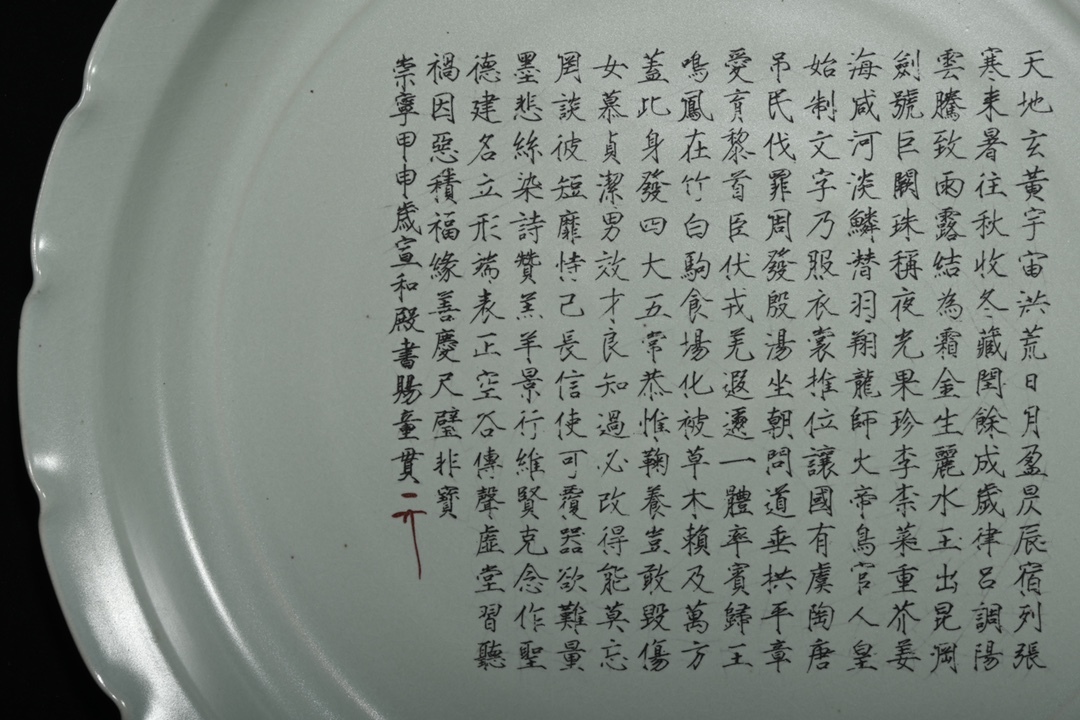 天地玄黃宇宙洪荒日月盈昃辰宿列張
寒來暑往秋收冬藏閏餘成歲律呂調陽
雲騰致雨露結為霜金生麗水玉出昆岡
劍號巨闕珠稱夜光果珍李柰菜重芥姜
海咸河淡鱗替羽翔龍師火帝鳥官人皇
始制文字乃服衣裳推位讓國有虞陶唐
吊民伐罪周發殷湯坐朝問道垂拱平章
愛育黎首臣伏戎羌遐邇一體率賓歸王
鳴鳳在竹白駒食場化被草木賴及萬方
蓋此身發四大五常恭惟鞠養豈敢毀傷
女慕貞潔男效才良知過必改得能莫忘
罔談彼短靡恃己長信使可覆器欲難量
墨悲絲染詩贊羔羊景行維賢克念作聖
德建名立形端表正空谷傳聲虛堂習聽
禍因惡積福緣善慶尺璧非寶
崇寧甲申歲宣和殿書賜童貫